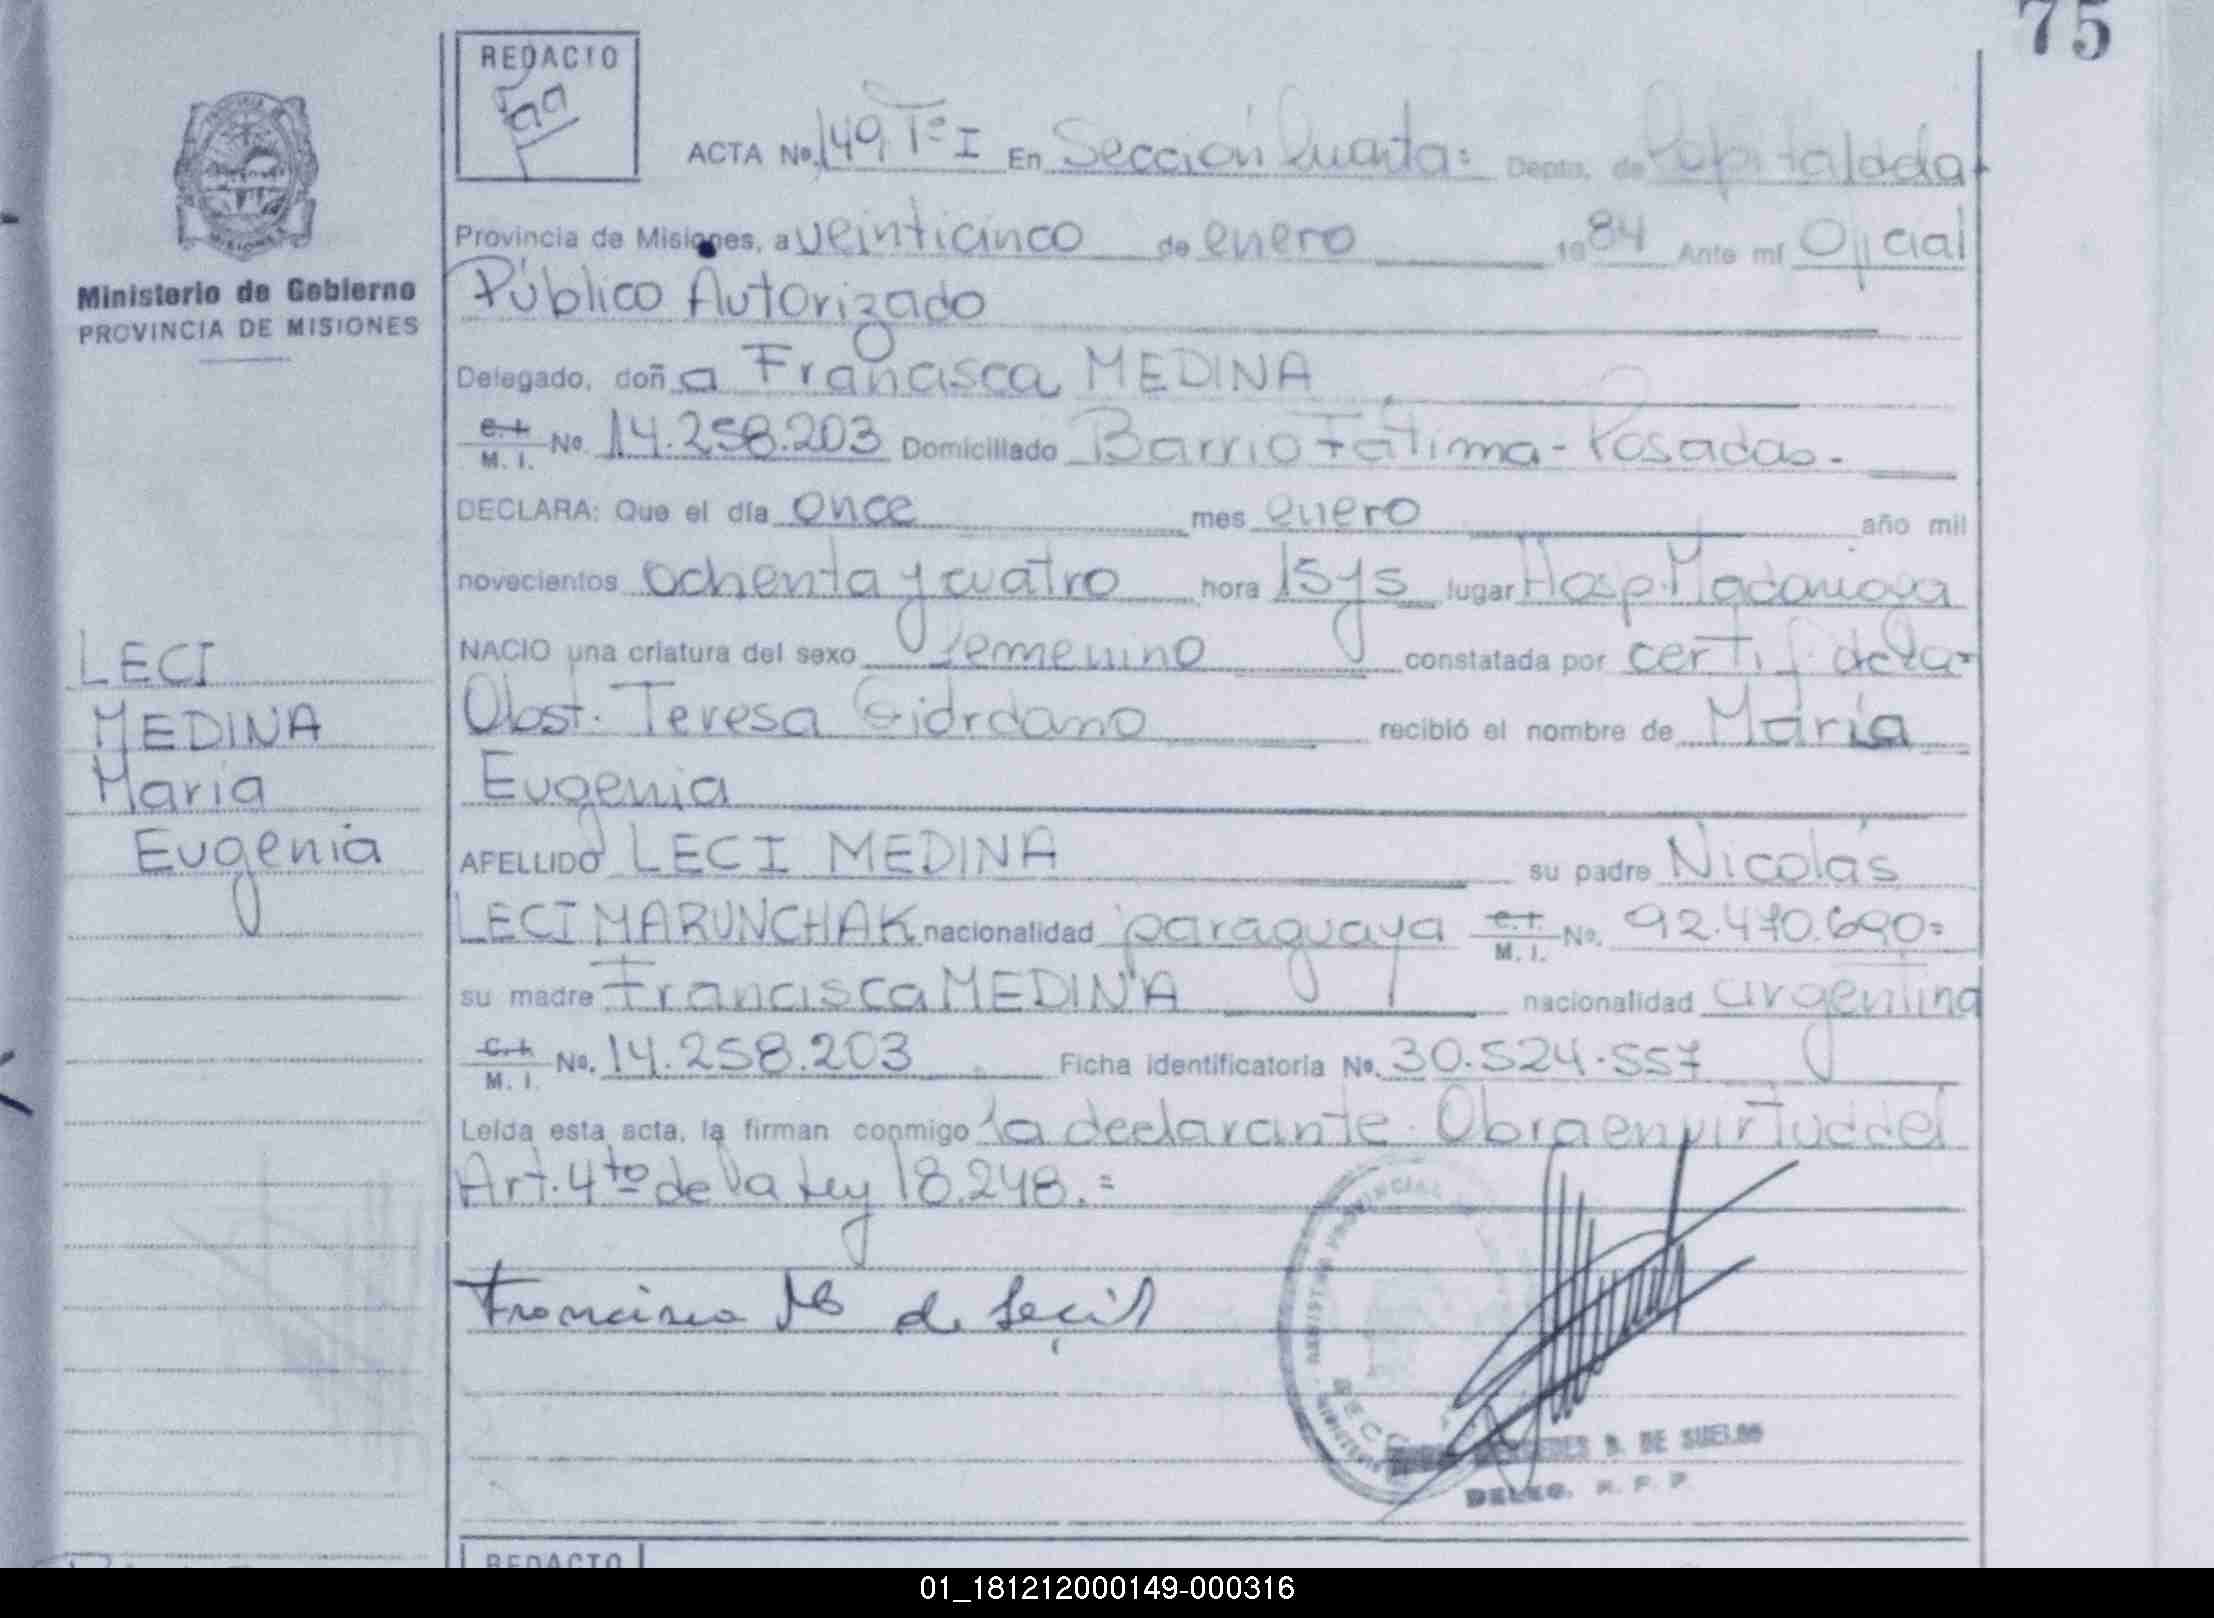 75
REDACTO
ACTA No. 149 Tº I En Sección Cuarta: Depto. de Capital de la
Provincia de Misiones, a veinticinco de enero 1984 Ante mí Oficial
Público Autorizado
Delegado, doña Francisca MEDINA
M. I. No. 14.258.203 Domiciliado Barrio Fátima - Posadas.
DECLARA: Que el día once mes enero año mil
novecientos ochenta y cuatro hora 15 y 5 lugar Hosp. Madariaga
NACIO una criatura del sexo femenino constatada por certif. de la
Obst. Teresa Giordano recibió el nombre de María
Eugenia
APELLIDO LECI MEDINA su padre Nicolás
LECI MARUNCHAK nacionalidad paraguaya M. I. No. 92.470.690=
su madre Francisca MEDINA nacionalidad argentina
M. I. No. 14.258.203 Ficha identificatoria No. 30.524.557
Leída esta acta, la firman conmigo la declarante. Obra en virtud del
Art. 4to de la Ley 18.248.=
Francisca M de Leci
REGISTRO PROVINCIAL
B. DE SUELDO
DELEG. R. P. P.
Ministerio de Gobierno
PROVINCIA DE MISIONES
LECI
MEDINA
María
Eugenia
REDACTO
01_181212000149-000316